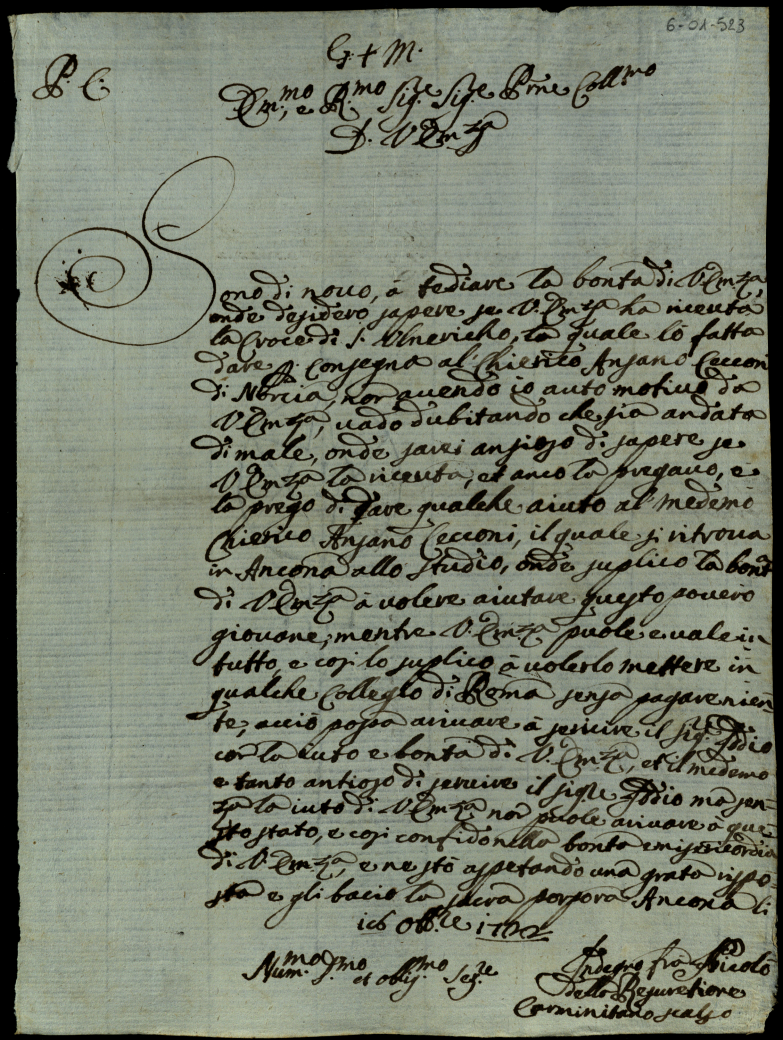 6-01-523
G. + M.
P. C.
Em:mo, e R.mo Sig.re Sig.re Prne Coll.mo
D. V Emza
Sono di nouo, à tediare la bontà di V Emza,
onde desidero sapere se V Emza ha riceuta
la Croce di S. Vlnericho, la quale lò fatta
dare P. Consegna al Chierico Ansano Cecconi
di Norcia, non auendo io auto motiuo da
V Emza, uado dubitando che sia andata
di male, onde sarei ansioso di sapere se
V Emza la riceuta, et anco la pregauo, e
la prego di dare qualche aiuto al medemo
Chierico Ansano Cecconi, il quale si ritroua
in Ancona allo studio, onde suplico la bontà
di V Emza à volere aiutare questo pouero
giouane, mentre V. Emza puole e uale in
tutto, e cosi lo suplico à volerlo mettere in
qualche Collegio di Roma senza pagare nien=
te, acciò possa ariuare à seruire il Sig. Iddio
con la iuto e bontà di V. Emza, et il medemo
e tanto antioso di seruire il sig.re Iddio ma sen=
za la iuto di V Emza non puole ariuare à que=
sto stato, e cosi confido nella bontà e misericordia
di V. Emza, e ne stò aspetando una grata rispo=
sta e gli bacio la sacra porpora Ancona li
16 Ott.re 1702
Num.mo D.mo et oblig.mo Se.re
Indegno fra Nicolò
della Resuretione
Carminitano scalso